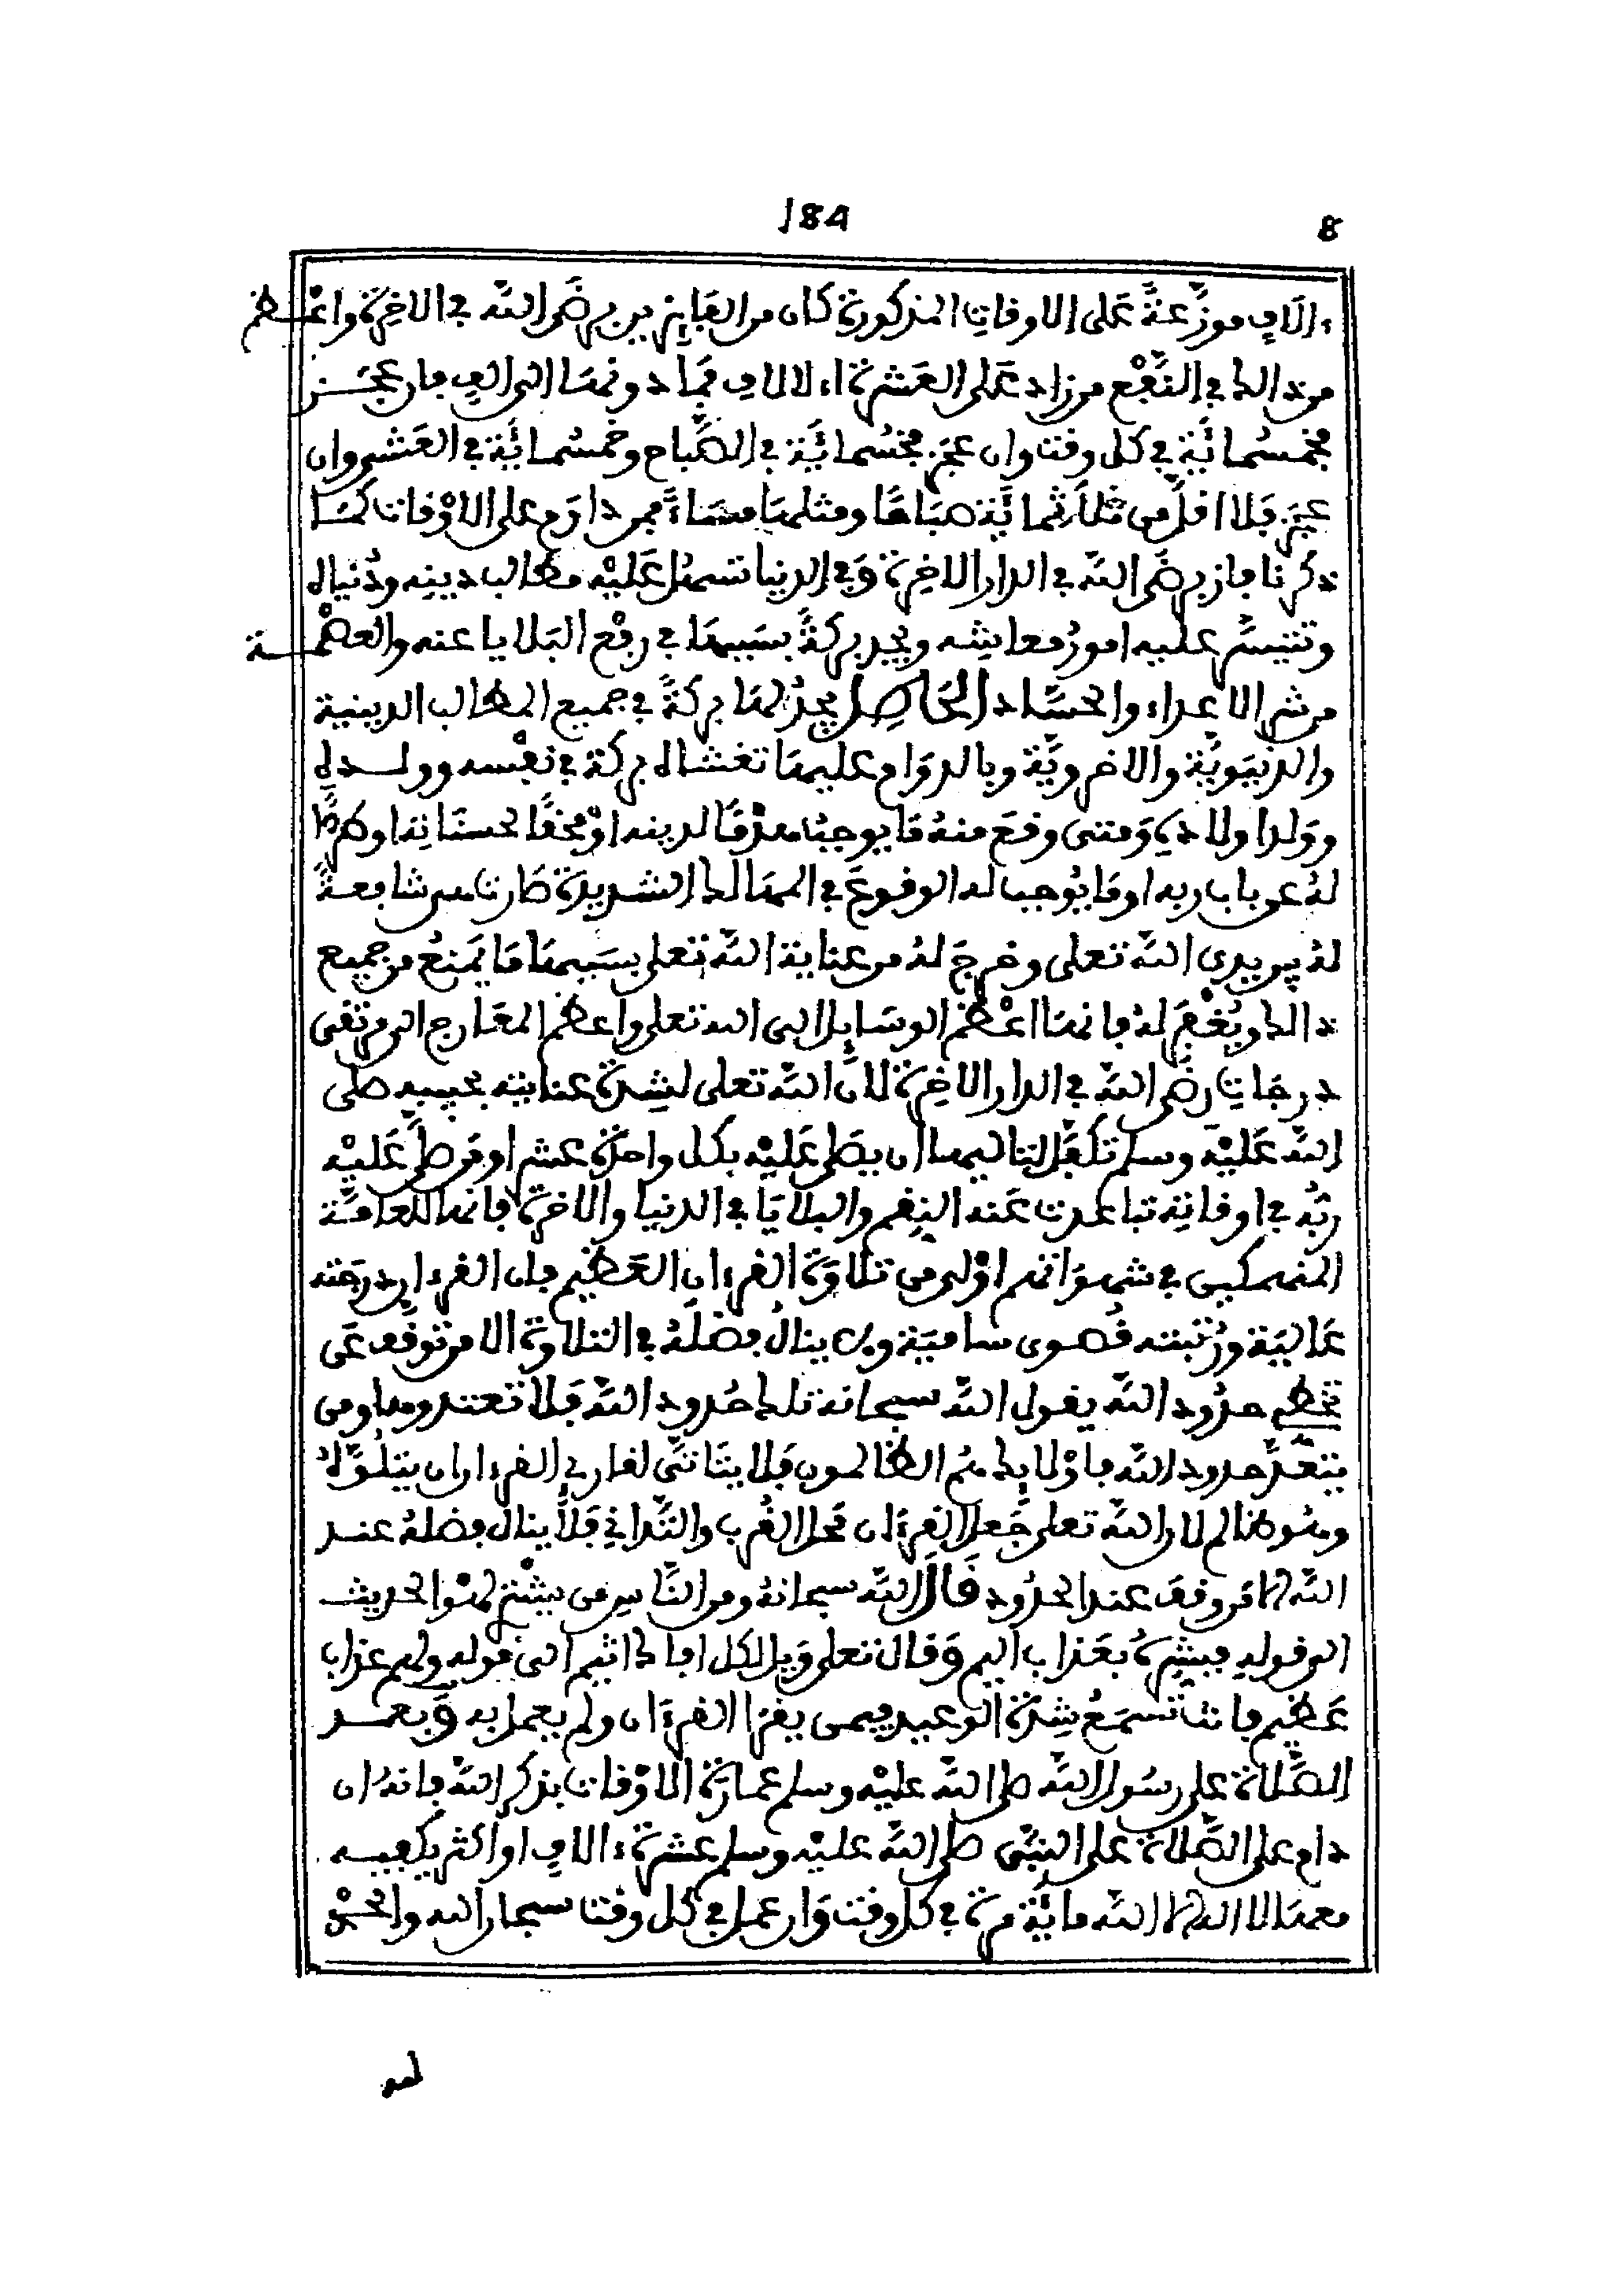 184
8
ءالاف موزعة على الاوقات المذكورة كان من الفايزين برضى الله في الاخرة واعظم
من ذالك في النفع من زاد على العشرة ءالالاف فما دونها الى الف فان عجز
فخمسمائة في كل وقت وان عجز فخسمائة في الصباح وخمسمائة في العشي وان
عجز فلا اقل من ثلاثمائة صباحا ومثلها مساء فمن داوم على الاوقات كما
ذكرنا فاز برضى الله في الدار الاخرة وفي الدنيا تسهل عليه مطالب دينه ودنياه
وتتيسر عليه امور معايشه ويجد بركة بسببها في رفع البلايا عنه والعصمة
من شر الاعداء والحساد الحاصل يجد لها بركة في جميع المطالب الدينية
والدنيوية والاخروية وبالدوام عليها تغشاه بركة في نفسه وولده
وولد اولاده ومتى وقع منه ما يوجب محقا لدينه او محقا لحسناته او طردا
له عن باب ربه او ما يوجب له الوقوع في المهالك الشديدة صارت شافعة
له بين يدي الله تعلى وخرج له من عناية الله تعلى بسببها ما يمنع من جميع
ذالك ويغفر له فانها اعظم الوسايل الى الله تعلى واعظم المعارج الى مرتقى
درجات رضى الله في الدار الاخرة لان الله تعلى لشدة عنايته بحبيبه صلى
الله عليه وسلم تكفل لتاليها ان يصلى عليه بكل واحدة عشرا ومن صلى عليه
ربه في اوقاته تباعدت عنه النقم والبلايا في الدنيا والاخرة فانها للعامة
المنهمكين في شهواتهم اولى من تلاوة القرءان العظيم فان القرءان درجته
عالية ورتبته قصوى سامية ولا ينال فضله في التلاوة الا من توقف عن
تخطي حدود الله يقول الله سبحانه تلك حدود الله فلا تعتدوها ومن
يتعد حدود الله فاولايك هم الظالمون فلا يتاتى لقارئ القرءان ان يتلوه
وهو ظالم لان الله تعلى جعل القرءان محل القرب والتداني فلا ينال فضله عند
الله الا من وقف عند الحدود قال الله سبحانه ومن الناس من يشتري لهو الحديث
الى قوله فبشره بعذاب اليم وقال تعلى ويل لكل افاك اثيم الى قوله ولهم عذاب
عظيم فانت تسمع شدة الوعيد فيمن يقرا القرءان ولم يعمل به وبعد
الصلاة على رسول الله صلى الله عليه وسلم عمارة الاوقات بذكر الله فانه ان
دام على الصلاة على النبي صلى الله عليه وسلم عشرة ءالاف او اكثر يكفيه
معها لا اله الا الله مائة مرة في كل وقت وان عمل في كل وقت سبحان الله والحمد
لله